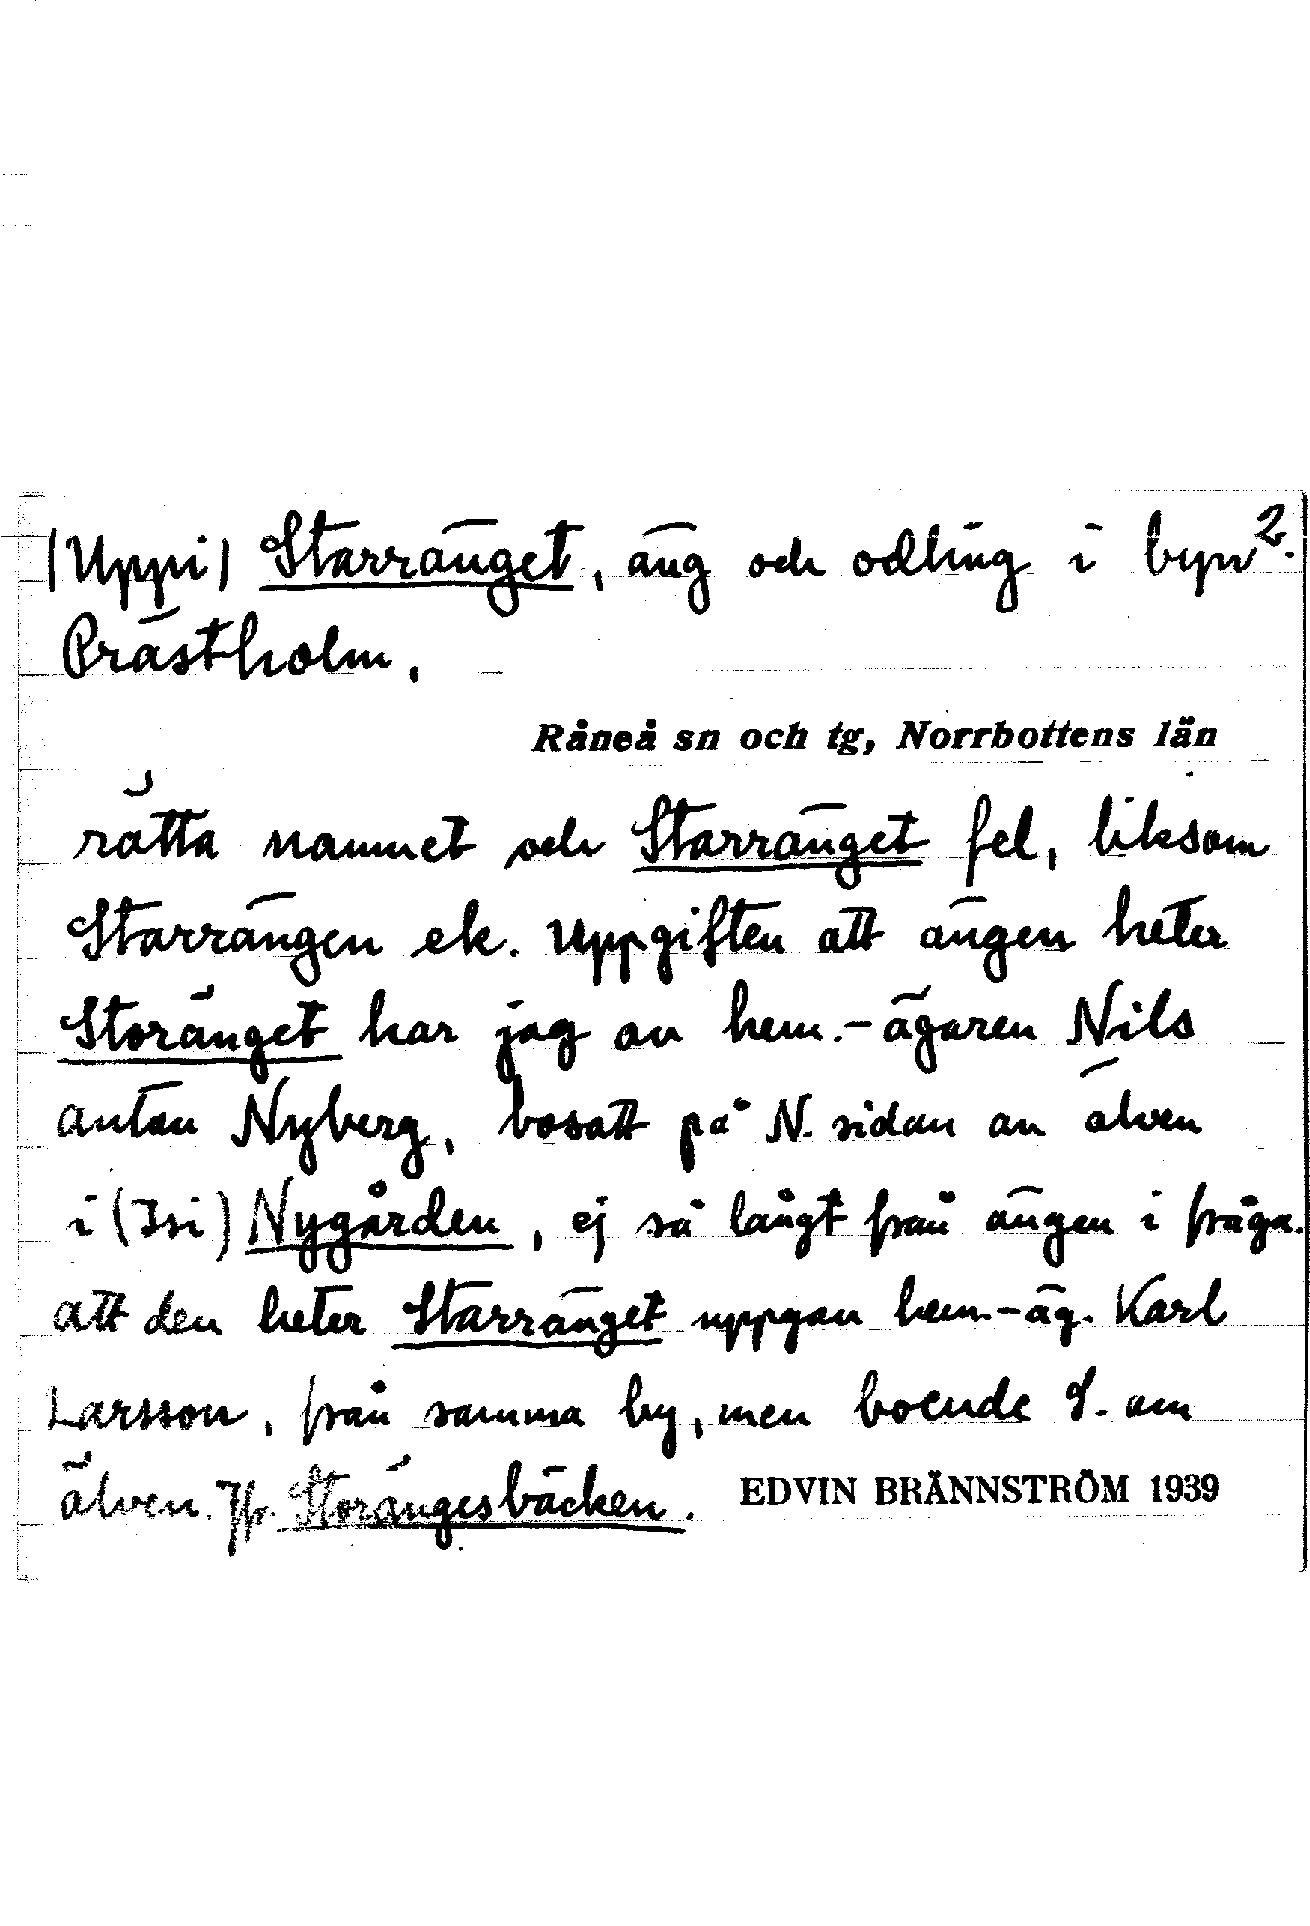 (Uppi) Starränget, äng och odling i byn 2.
Prästholm.
Råneå sn och tg, Norrbottens län
rätta namnet och Starränget fel, liksom
Starrängen ek. Uppgiften att ängen heter
Storänget har jag av hem.-ägaren Nils
Anton Nyberg, bosatt på N. sidan av älven
i (Isi) Nygården, ej så långt från ängen i fråga.
Att den heter Starränget uppgav hem.-äg. Karl
Larsson, från samma by, men boende S. om
älven. Jfr Storängesbäcken.
EDVIN BRÄNNSTRÖM 1939